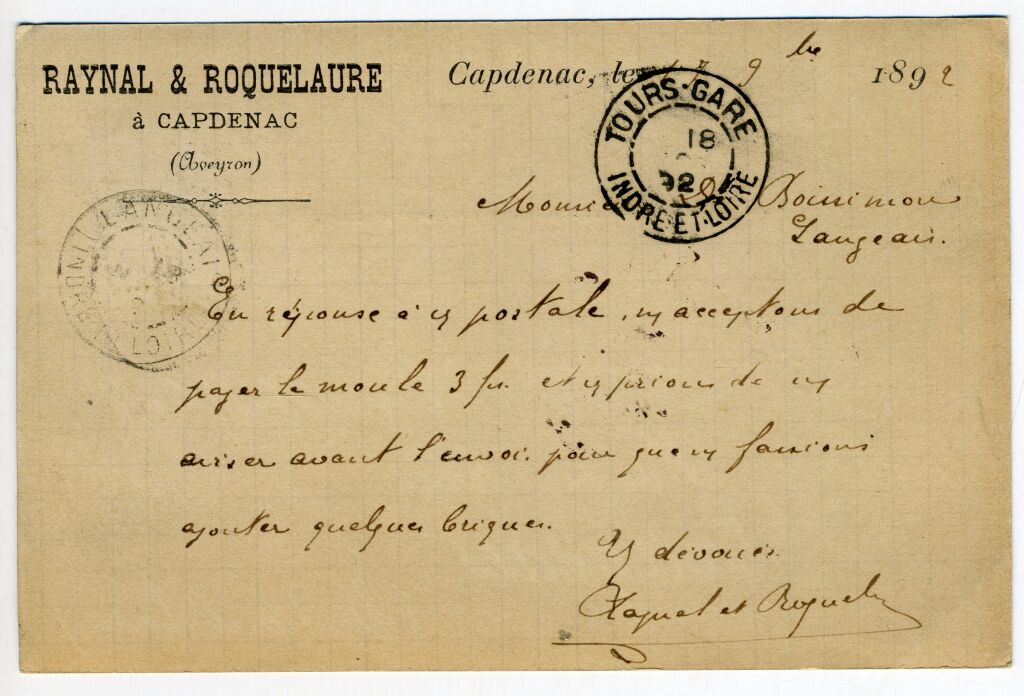 RAYNAL & ROQUELAURE
à CAPDENAC
(Aveyron)
Capdenac, le 17 9bre 1892
TOURS-GARE
18
92
INDRE-ET-LOIRE
Monsieur Boissimon
Langeais.
LANGEAIS
LOIRE
En réponse à postale, acceptons de
payer le moule 3 frs. et prions de
aviser avant l'envoi pour que fassions
ajouter quelques briques.
dévoués.
Raynal et Roquelaure